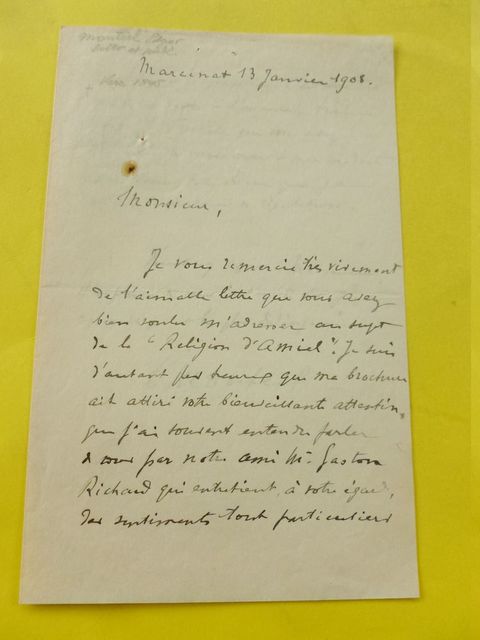 Marcinat 13 Janvier 1908.
Monsieur,
Je vous remercie très vivement
de l'aimable lettre que vous avez
bien voulu m'adresser au sujet
de la "Religion d'Amiel". Je suis
d'autant plus heureux que ma brochure
ait attiré votre bienveillante attention,
que j'ai souvent entendu parler
de vous par notre ami Mr. Gaston
Richard qui entretient, à votre égard,
des sentiments tout particuliers